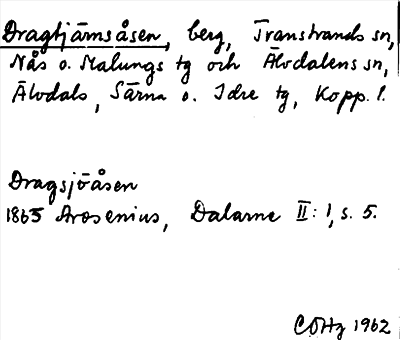 Dragtjärnsåsen, berg, Transtrands sn,
Nås o. Malungs tg och Älvdalens sn,
Älvdals, Särna o. Idre tg, Kopp. l.
Dragsjöåsen
1865 Arosenius, Dalarne II: 1, s. 5.
COHg 1962